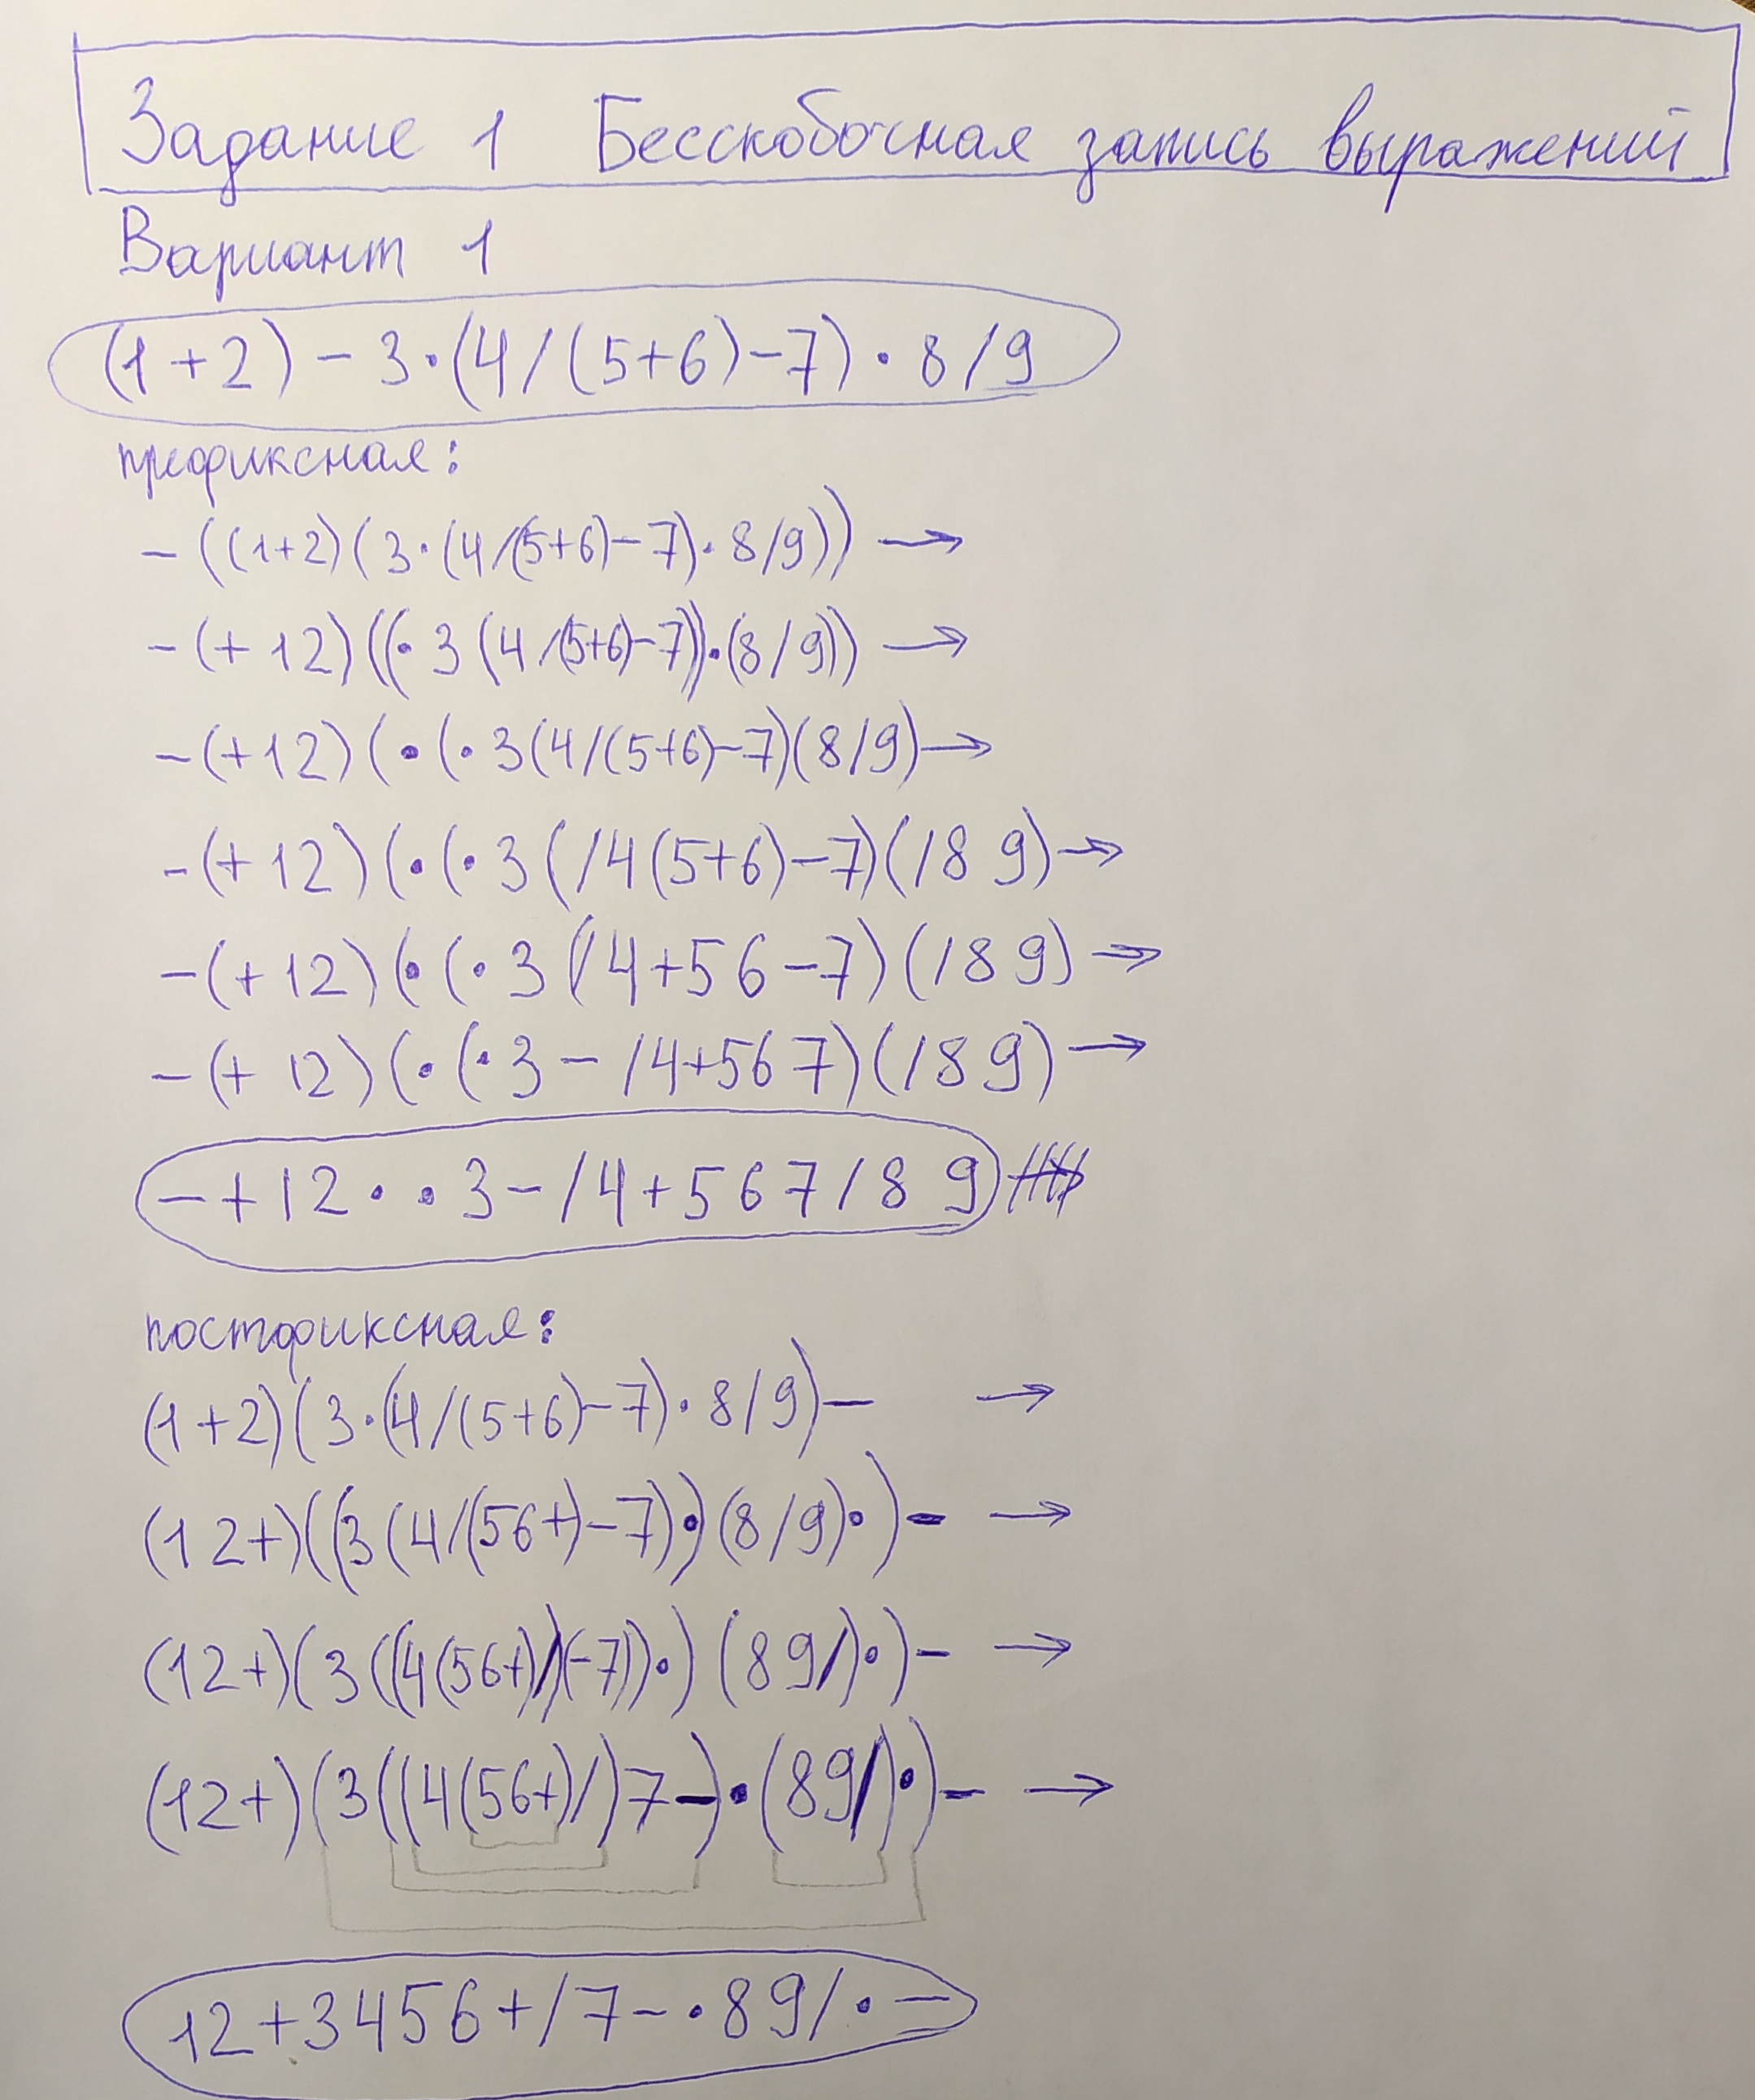 Задание 1 Бесскобочная запись выражений
Вариант 1
(1+2)-3·(4/(5+6)-7)·8/9
префиксная:
-((1+2)(3·(4/(5+6)-7)·8/9)) →
-(+12)((·3(4/(5+6)-7))·(8/9)) →
-(+12)(·(·3(4/(5+6)-7)(8/9) →
-(+12)(·(·3(/4(5+6)-7)(/89) →
-(+12)(·(·3(/4+56-7)(/89) →
-(+12)(·(·3-/4+567)(/89) →
-+12··3-/4+567/89
постфиксная:
(1+2)(3·(4/(5+6)-7)·8/9)- →
(12+)((3(4/(56+)-7)·)(8/9)·)- →
(12+)(3((4(56+)/)(-7))·)(89/)·)- →
(12+)(3((4(56+)/)7-)·(89/)·)- →
12+3456+/7-·89/·-